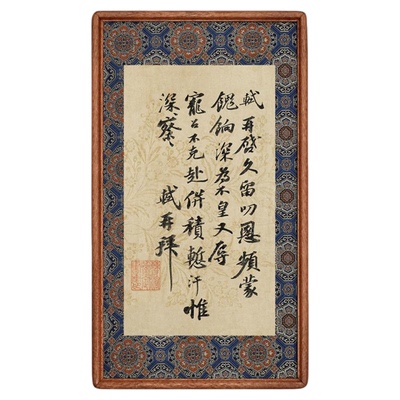 軾再啓久留叨恩頻蒙
餽餉深為不皇又辱
寵召不克赴併積慙汗惟
深察軾再拜